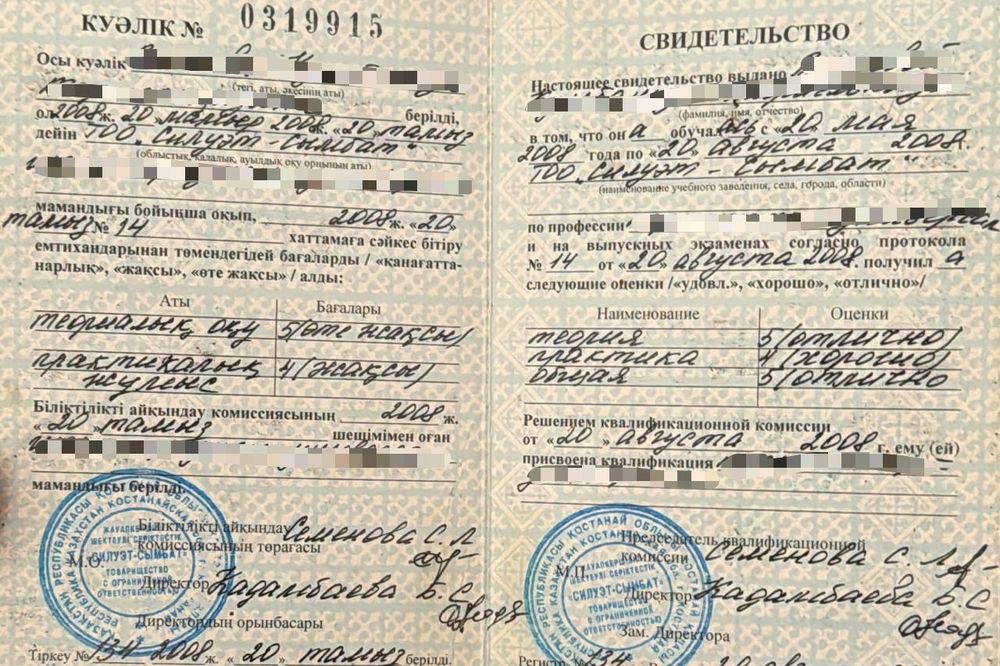 КУӘЛІК № 0319915
Осы куәлік
(тегі, аты, әкесінің аты)
берілді,
ол 2008 ж. «20» мамыр 2008 ж. «20» тамыз
дейін ТОО „Силуэт-Сымбат“
(облыстық, қалалық, ауылдық оқу орнының аты)
мамандығы бойынша оқып, 2008 ж. «20»
тамыз № 14 хаттамаға сәйкес бітіру
емтихандарынан төмендегідей бағаларды / «қанағатта-
нарлық», «жақсы», «өте жақсы» / алды:
Аты Бағалары
теориалық оқу 5 (өте жақсы)
практикалық 4 (жақсы)
жұмыс
Біліктілікті айқындау комиссиясының 2008 ж.
«20» тамыз шешімімен оған
мамандығы берілді.
Біліктілікті айқындау
комиссиясының төрағасы Семенова С. Л
М.О.
Директор Кадамбаева Б. С
Директордың орынбасары
Тіркеу № 134 2008 ж. «20» тамыз берілді.
ҚАЗАҚСТАН РЕСПУБЛИКАСЫ
ЖАУАПКЕРШІЛІГІ
ШЕКТЕУЛІ СЕРІКТЕСТІК
"СИЛУЭТ-СЫМБАТ"
ТОВАРИЩЕСТВО
С ОГРАНИЧЕННОЙ
ОТВЕТСТВЕННОСТЬЮ
СВИДЕТЕЛЬСТВО
Настоящее свидетельство выдано
(фамилия, имя, отчество)
в том, что он а обучалась с «20» мая
2008 года по «20» августа 2008 г.
ТОО „Силуэт-Сымбат“
(наименование учебного заведения, села, города, области)
по профессии
и на выпускных экзаменах согласно протокола
№ 14 от «20» августа 2008. получил а
следующие оценки /«удовл.», «хорошо», «отлично»/
Наименование Оценки
теория 5 (отлично)
практика 4 (хорошо)
общая 5 (отлично
Решением квалификационной комиссии
от «20» августа 2008 г. ему (ей)
присвоена квалификация
Председатель квалификационной
комиссии Семенова С. Л
М.П.
Директор Кадамбаева Б. С
Зам. Директора
Регистр. № 134
ЖАУАПКЕРШІЛІГІ
ШЕКТЕУЛІ СЕРІКТЕСТІК
"СИЛУЭТ-СЫМБАТ"
ТОВАРИЩЕСТВО
С ОГРАНИЧЕННОЙ
ОТВЕТСТВЕННОСТЬЮ